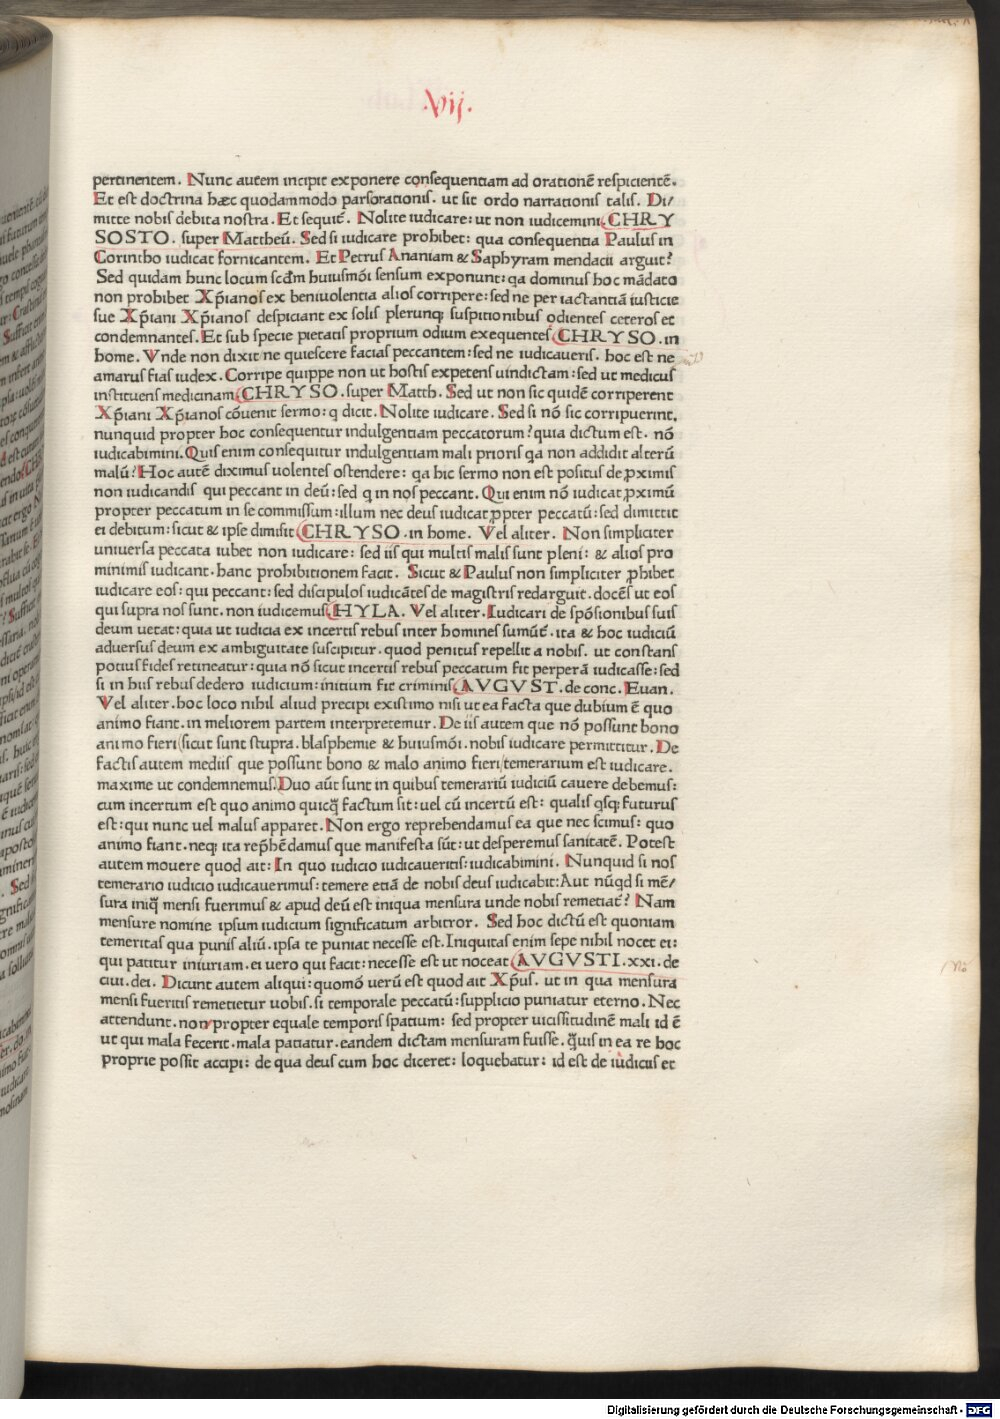 Vij.
pertinentem. Nunc autem incipit exponere consequentiam ad orationē respicientē.
Et est doctrina hæc quodammodo pars orationis. ut sit ordo narrationis talis. Di/
mitte nobis debita nostra. Et sequit̄. Nolite iudicare: ut non iudicemini CHRY
SOSTO. super Mattheū. Sed si iudicare prohibet: qua consequentia Paulus in
Corintho iudicat fornicantem. Et Petrus Ananiam & Saphyram mendacii arguit?
Sed quidam hunc locum scd̄m huiusmōi sensum exponunt: qa dominus hoc mādato
non prohibet Xp̄ianos ex beniuolentia alios corripere: sed ne per iactantiā iusticie
sue Xp̄iani Xp̄ianos despiciant ex solis plerunq; suspitionibus odientes ceteros et
condemnantes. Et sub specie pietatis proprium odium exequentes CHRYSO. in
home. Vnde non dixit ne quiescere facias peccantem: sed ne iudicaueris. hoc est ne
amarus fias iudex. Corripe quippe non ut hostis expetens uindictam: sed ut medicus
instituens medicinam CHRYSO. super Matth. Sed ut non sic quidē corriperent
Xp̄iani Xp̄ianos cōuenit sermo: q dicit. Nolite iudicare. Sed si nō sic corripuerint.
nunquid propter hoc consequentur indulgentiam peccatorum? quia dictum est. nō
iudicabimini. Quis enim consequitur indulgentiam mali prioris qa non addidit alterū
malū? Hoc autē diximus uolentes ostendere: qa hic sermo non est positus de ꝓximis
non iudicandis qui peccant in deū: sed q in nos peccant. Qui enim nō iudicat ꝓximū
propter peccatum in se commissum: illum nec deus iudicat ꝓpter peccatū: sed dimittit
ei debitum: sicut & ipse dimisit CHRYSO. in home. Vel aliter. Non simpliciter
uniuersa peccata iubet non iudicare: sed iis qui multis malis sunt pleni: & alios pro
minimis iudicant. hanc prohibitionem facit. Sicut & Paulus non simpliciter ꝓhibet
iudicare eos: qui peccant: sed discipulos iudicātes de magistris redarguit. docēs ut eos
qui supra nos sunt. non iudicemus HYLA. Vel aliter. Iudicari de spōsionibus suis
deum uetat: quia ut iudicia ex incertis rebus inter homines sumūt̄. ita & hoc iudiciū
aduersus deum ex ambiguitate suscipitur. quod penitus repellit a nobis. ut constans
potius fides retineatur: quia nō sicut incertis rebus peccatum fit perperā iudicasse: sed
si in hiis rebus dedero iudicium: initium fit criminis AVGVST. de conc. Euan.
Vel aliter. hoc loco nihil aliud precipi existimo nisi ut ea facta que dubium ē quo
animo fiant. in meliorem partem interpretemur. De iis autem que nō possunt bono
animo fieri (sicut sunt stupra. blasphemie & huiusmōi. nobis iudicare permittitur. De
factis autem mediis que possunt bono & malo animo fieri temerarium est iudicare.
maxime ut condemnemus. Duo aūt sunt in quibus temerariū iudiciū cauere debemus:
cum incertum est quo animo quicq̄ factum sit: uel cū incertū est: qualis qsq; futurus
est: qui nunc uel malus apparet. Non ergo reprehendamus ea que nec scimus: quo
animo fiant. neq; ita rep̄hēdamus que manifesta sūt: ut desperemus sanitatē. Potest
autem mouere quod ait: In quo iudicio iudicaueritis: iudicabimini. Nunquid si nos
temerario iudicio iudicauerimus: temere etiā de nobis deus iudicabit: Aut nūqd si mē/
sura iniq̄ mensi fuerimus & apud deū est iniqua mensura unde nobis remetiat̄? Nam
mensure nomine ipsum iudicium significatum arbitror. Sed hoc dictū est quoniam
temeritas qua punis aliū. ipsa te puniat necesse est. Iniquitas enim sepe nihil nocet ei:
qui patitur iniuriam. ei uero qui facit: necesse est ut noceat AVGVSTI. xxi. de
ciui. dei. Dicunt autem aliqui: quomō uerū est quod ait Xp̄us. ut in qua mensura
mensi fueritis remetietur uobis. si temporale peccatū: supplicio puniatur eterno. Nec
attendunt. non propter equale temporis spatium: sed propter uicissitudinē mali id ē
ut qui mala fecerit. mala patiatur. eandem dictam mensuram fuisse. q̄uis in ea re hoc
proprie possit accipi: de qua deus cum hoc diceret: loquebatur: id est de iudiciis et
Digitalisierung gefördert durch die Deutsche Forschungsgemeinschaft - DFG